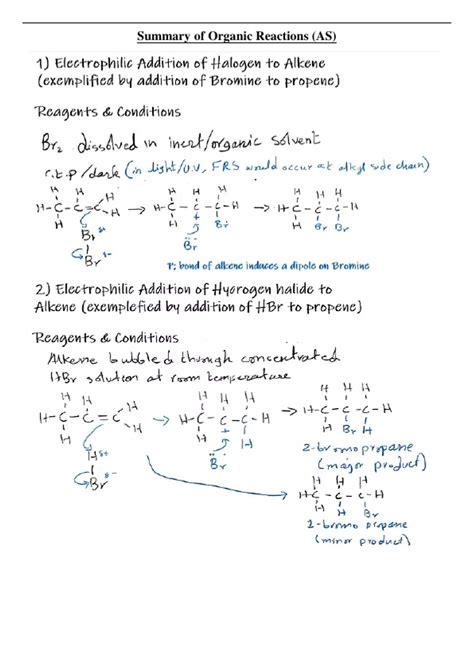 Summary of Organic Reactions (AS)
1) Electrophilic Addition of Halogen to Alkene
(exemplified by addition of Bromine to propene)
Reagents & Conditions
Br2 dissolved in inert/organic solvent
r.t.p /dark (in light/U.V, FRS would occur at alkyl side chain)
H H H H H H H H H
H-C-C=C-H → H-C-C-C-H → H-C-C-C-H
H H H + Br H Br Br
Br δ+ Br
Br δ-
π bond of alkene induces a dipole on Bromine
2) Electrophilic Addition of Hydrogen halide to
Alkene (exemplefied by addition of HBr to propene)
Reagents & Conditions
Alkene bubbled through concentrated
HBr solution at room temperature
H H H H H H H H H
H-C-C=C-H → H-C-C-C-H → H-C-C-C-H
H H H + H H Br H
H δ+ Br 2-bromopropane
Br δ- (major product)
H H H
H-C-C-C-H
H H Br
2-bromo propane
(minor product)